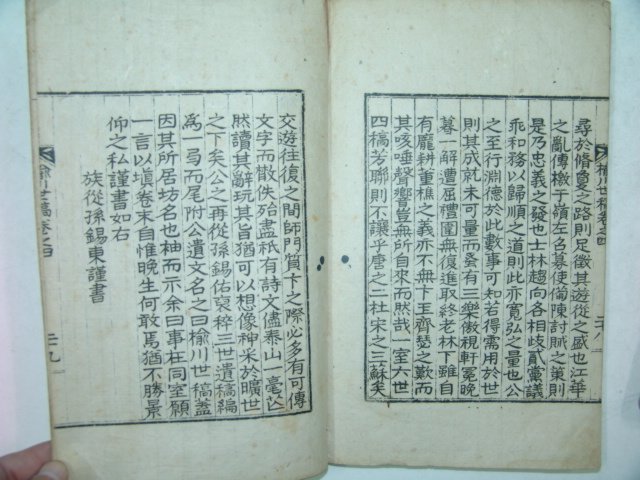 尋於脩夐之路則足徵其遊從之盛也江華
之亂傳檄于嶺左名募使蒭陳討賊之策則
是乃忠義之發也士林趨向各相歧貳黨議
乖和務以歸順之道則此亦寬弘之量也公
之至行淵德於此數事可知若得需用於世
則其成就未可量而奚有三樂儆稅軒冤晚
暮一解遭屈禮圍無復進取終老林下雖自
有龐耕董樵之義亦不無下王齊瑟之歎而
其咳唾聲響豈無所自來而然哉一室六世
四稿芳聯則不讓乎唐之二杜宋之三蘇矣
榆川世稿卷之四
二十八
交遊往復之間師門質卞之際必多有可傳
文字而散佚殆盡祇有詩文僅泰山一毫芒
然讀其辭玩其旨猶可以想像神采於曠世
之下矣公之再從孫錫佑裒稡三世遺稿編
爲一弓而尾附公遺文名之曰榆川世稿盖
因其所居坊名也袖而示余曰事在同室願
一言以塡卷末自惟晚生何敢焉猶不勝景
仰之私謹書如右
族從孫錫東謹書
榆川世稿卷之四
二十九